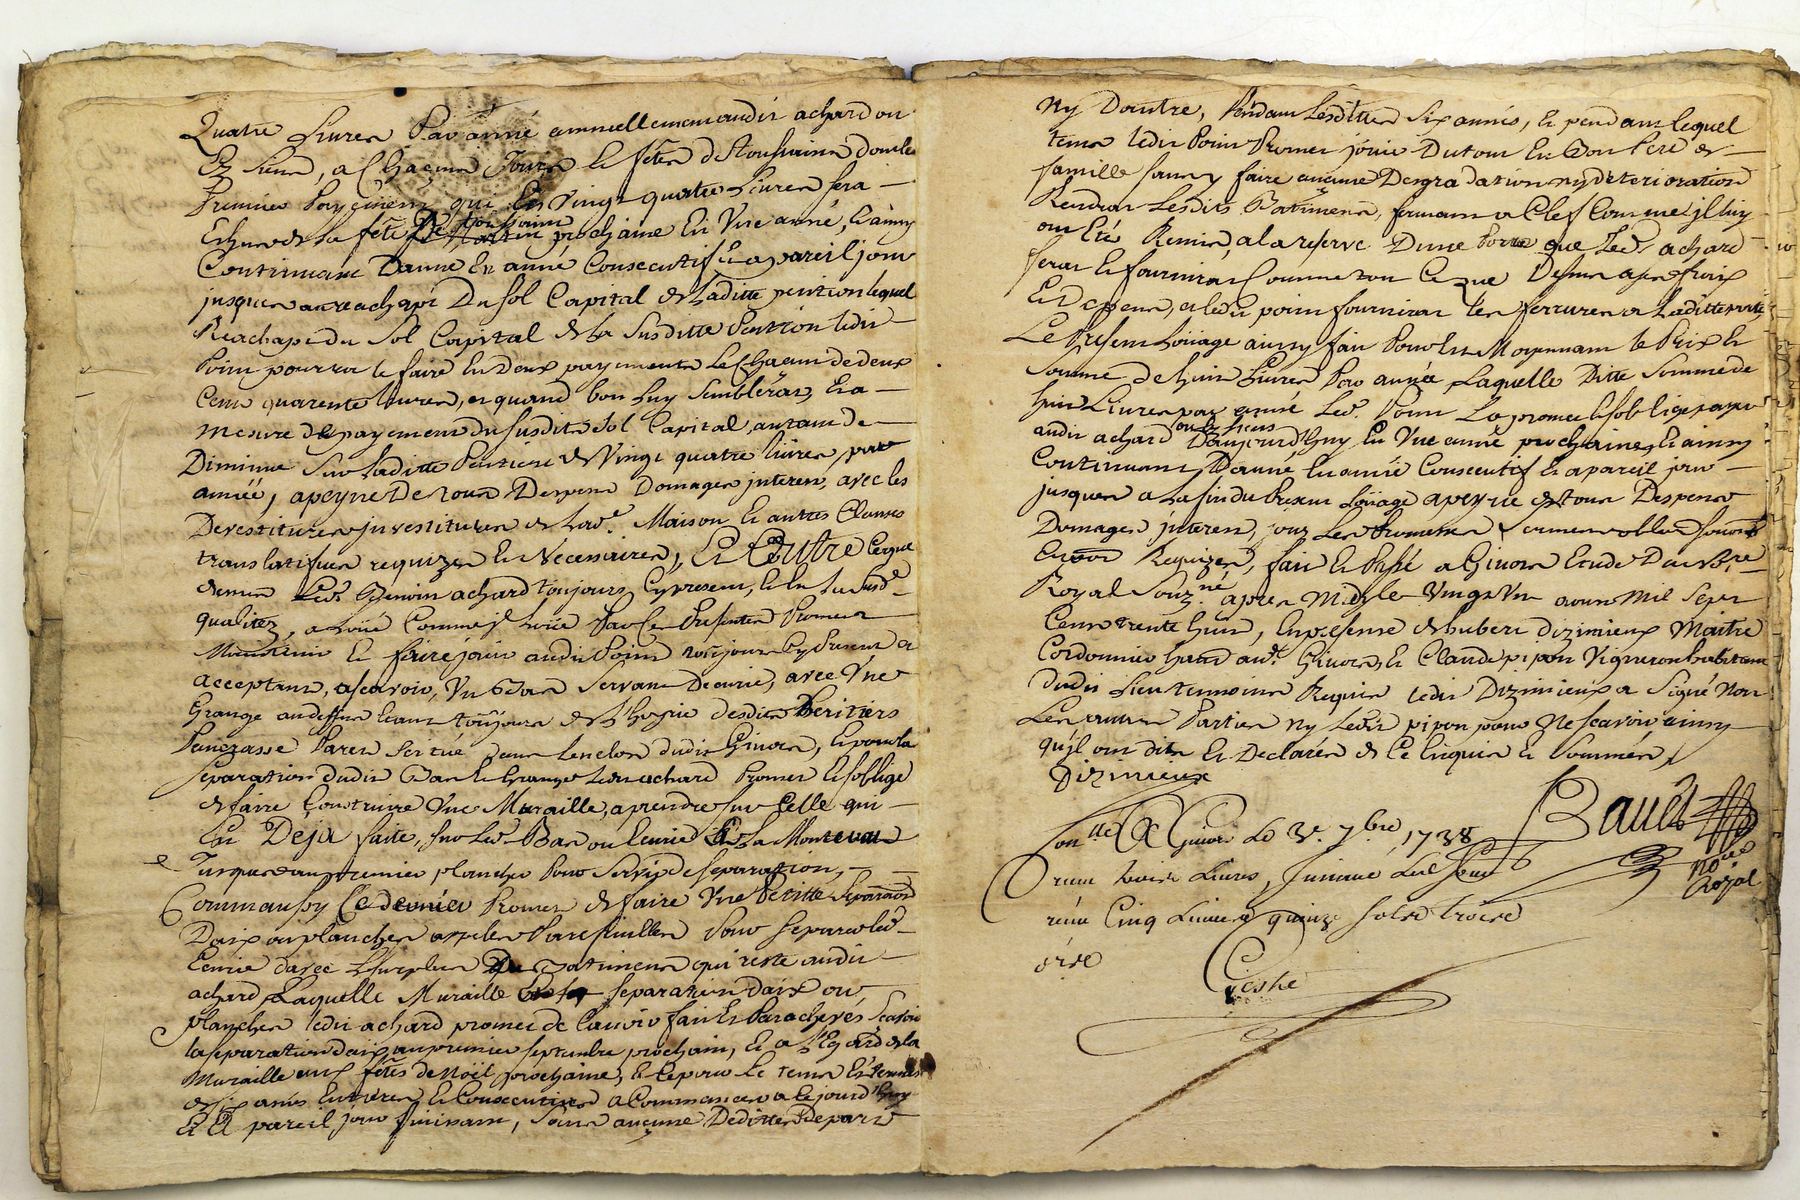 Quatre Livres Par année annuellement audit achard ou
Ez siens, a Chacune Jour et fêtes de Toussaint dont le
Premier Payement qui est vingt quatre Livres sera
Echu a la fête De toussaint prochaine En Une année, Et ainsy
Continuant D'année En année Consecutifs a pareil jour
jusques au reachapt Du sol Capital et laditte pention lequel
Reachapt du Sol Capital de la Susditte Pention ledit
Poin pourra le faire En deux payements Le Chacun de deux
Cents quarente livres, et quand bon luy Semblera, Et a
mesure de payement du susdit Sol Capital, autant de
Diminue Sur laditte Pention de Vingt quatre livres, par
année, a peyne De tous Depens Domages jnterets, avec les
Devestitures jnvestitures de lad.e Maison Et autres Clauses
translatifves requizes Et Necessaires, Et Outre Ce que
dessus Led.t achard toujours Cy present, Et En la susd.e
qualitez, a loüé Comme jl loüe Par Ce Presentes Promet
Maintenir Et faire jouir audit Poin toujours Cy Present Et
acceptant, ascavoir, Un Bas Servant D'ecurie, avec Une
Grange au dessus Etant toujours de desdits Heritiers
scitué dans l'enclos dudit Givors, Et pour la
separation dudit Bas Et Grange ledit achard Promet Et s'oblige
de faire Construire Une Muraille, a prendre sur Celle qui
Est Deja faite, sur led.t Bas ou Ecurie Et La Montera
Jusques au premier plancher Pour Servir de separation,
Comm'aussy Ce dernier Promet de faire Une Petitte Separation
D'aix ou planches Pour separer led.
Ecurie d'avec L'surplus Du Batiment qui reste audit
achard, Laquelle Muraille Et separation d'aix ou
planches ledit achard promet de l'avoir fait Et Parachevés Scavoir
la separation d'aix au premier septembre prochain, Et a L'Egard de la
Muraille aux fêtes de Noël prochaine, Et Ce pour Le tems Et termes
de six années Entieres Et Consecutives a Commancer a Ce jourd'huy
Et a pareil jour finissant, Sans aucune Deditte De part
Ny D'autre, Pendant Lesdittes Six années, Et pendant lequel
tems ledit Poin Promet jouir Du tout En Bon Pere de
famille sans y faire aucune Degradation ny deterioration
Rendra Lesdits Batiments, fermant a Clef Comme jl luy
ont Eté Remis, a la reserve D'une Porte que Led.t achard
fera Et fournira Comme tout Ce que Dessus a ses fraix
Et Depens, et ledit poin fournira les ferrures a Laditte porte,
Le Present Loüage ainsy fait Pour Et Moyennant le Prix Et
Somme de huit Livres Par année Laquelle Ditte Somme de
huit Livres par année Led.t Poin La promet Et s'oblige payer
audit achard ou Ez siens D'aujourd'huy En Une année prochaine, Et ainsy
Continuant D'année En année Consecutif Et a pareil jour
jusques a La fin du Present Loüage a peyne de tous Depens
Domages jnterets, sous Les Promesses Sermens obligations
Requizes, fait Et Passé a Givors Etude Du No.re
Royal Souz.né apres Midy le Vingt Un aoust Mil Sept
Cents trente huit, En presence d'hubert Dizimieux Maitre
Cordonnier hab.t aud.t Givors, Et Claude pipon Vigneron habitant
dudit Lieu temoins Requis ledit Dizimieux a Signé Non
Les autres Parties Ny Led.t pipon pour Ne Scavoir ainsy
qu'jl ont dit Et Declarés de Ce Enquis Et Sommés,
Dizimieux
Con.llé A Givors Le 3.e 7.bre 1738
Bauët
No.re
Royal
Cinq Livres quinze sols